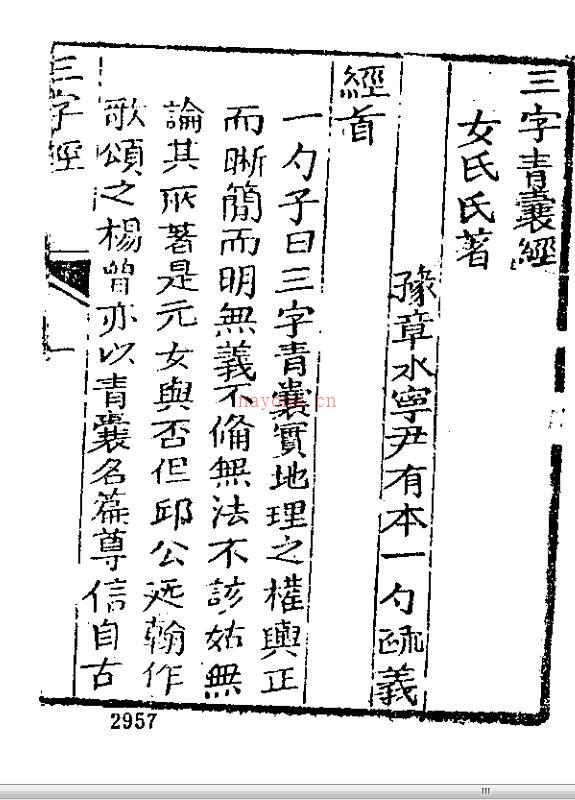 三字青囊經
女氏氏著
豫章水寧尹有本一勺疏義
經首
一勺子曰三字青囊實地理之權輿正
而晰簡而明無義不偹無法不該姑無
論其所著是元女與否但邱公延翰作
歌頌之楊曾亦以青囊名篇尊信自古
三字經
hayouni.cn
2957